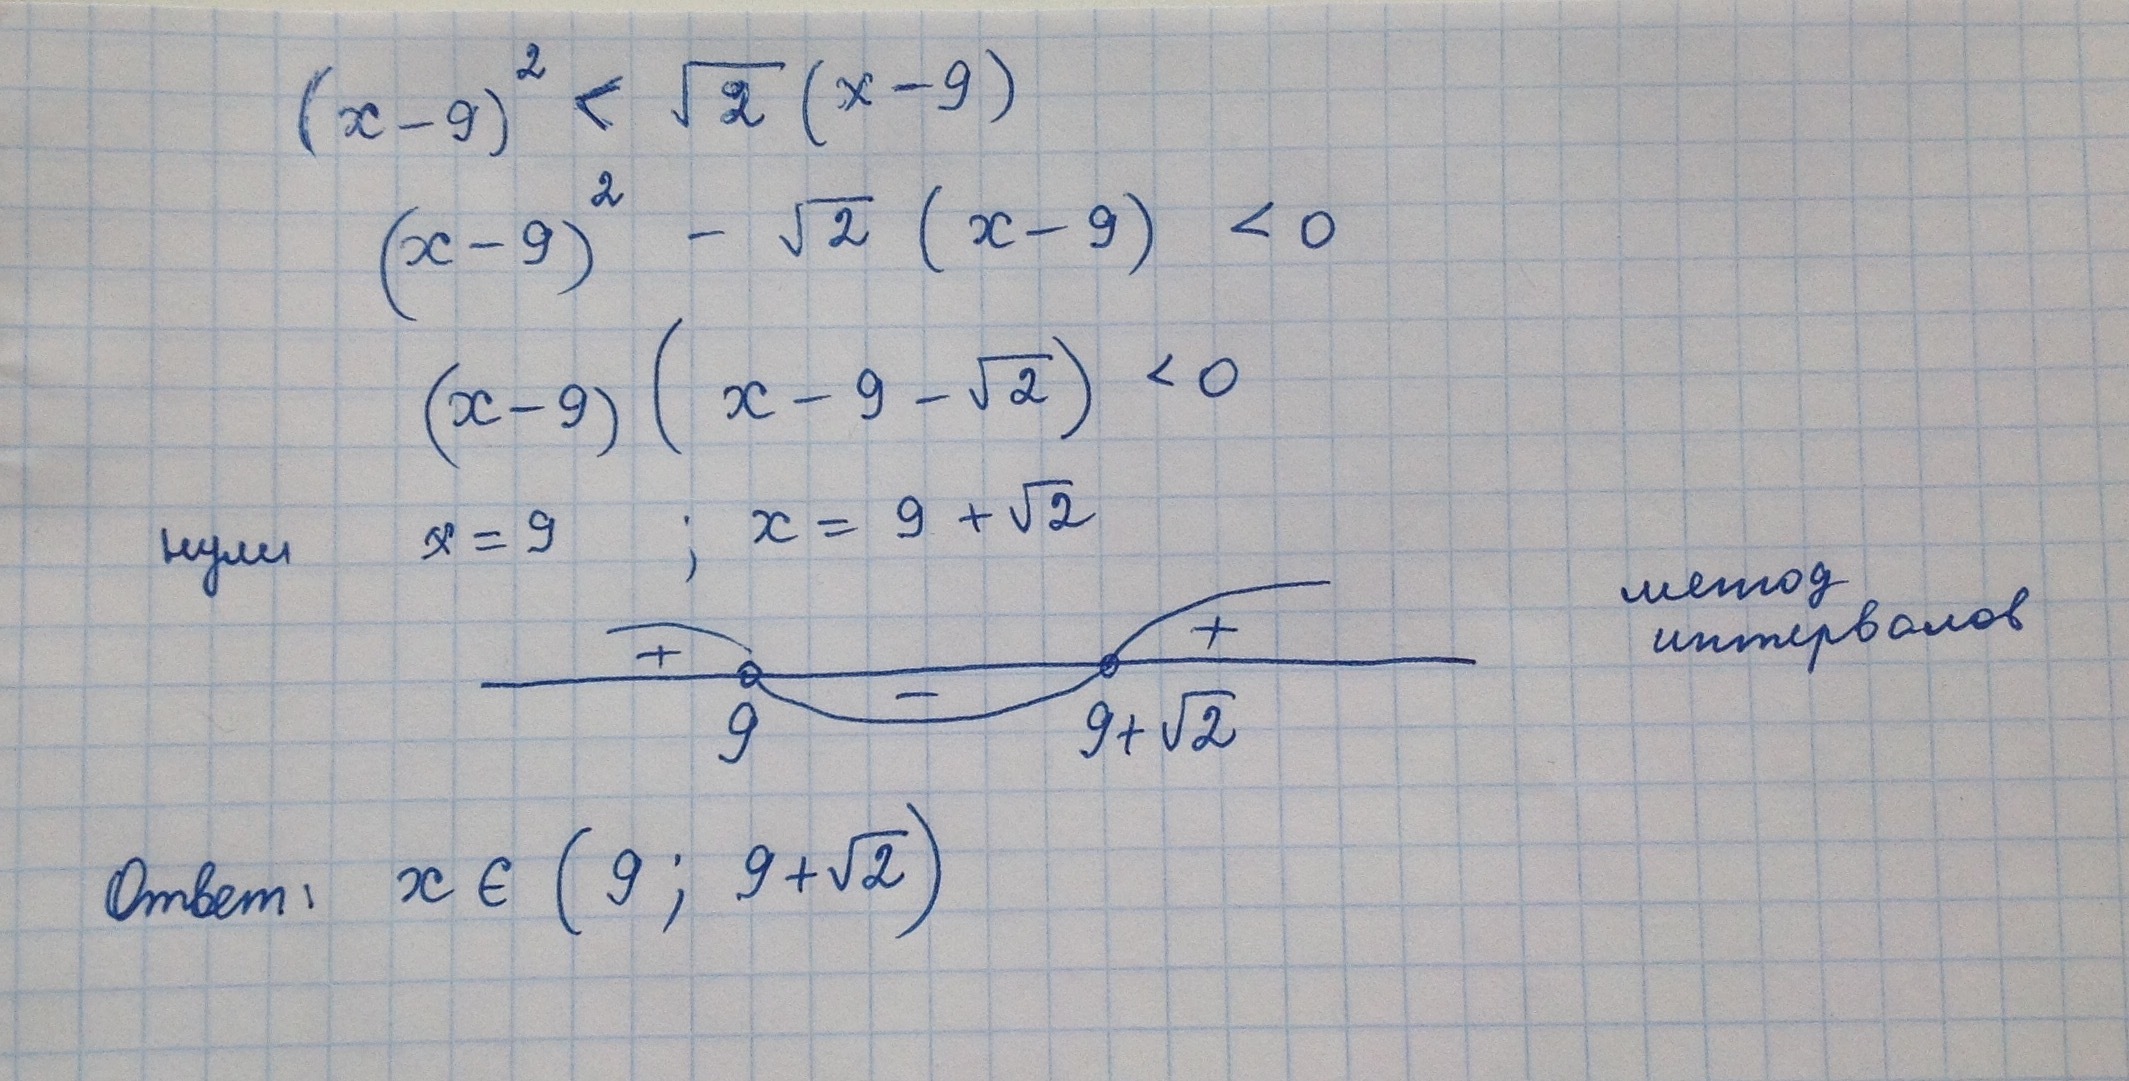 (x-9)² < √2 (x-9)
(x-9)² - √2 (x-9) < 0
(x-9) (x-9-√2) < 0
нули x=9 ; x = 9+√2
метод
интервалов
+ - +
9 9+√2
Ответ: x ∈ (9; 9+√2)